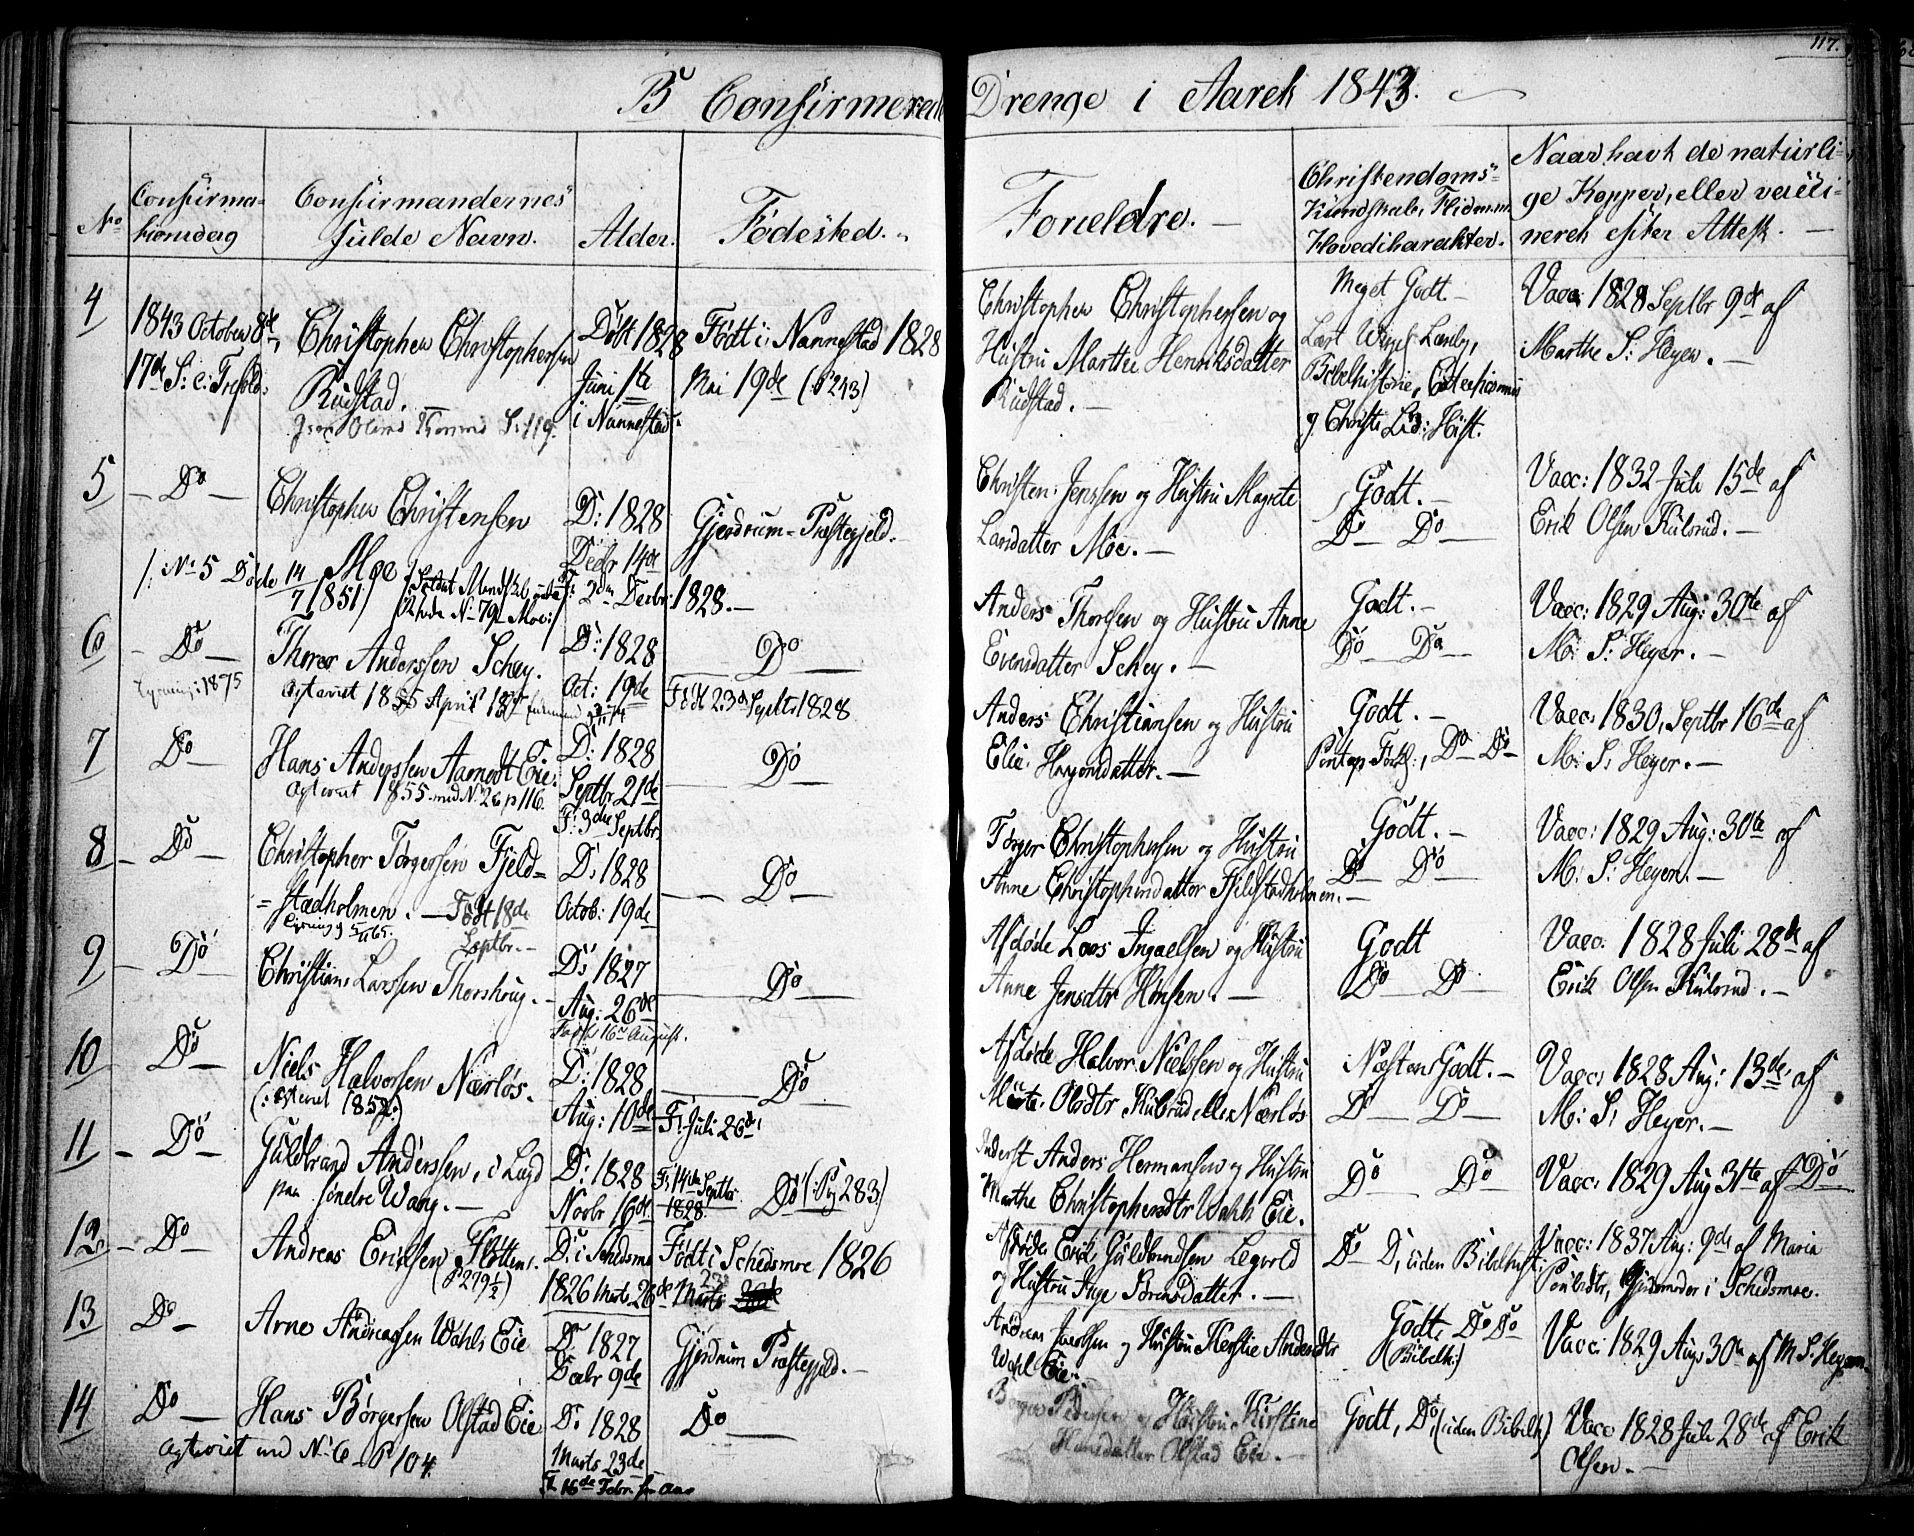 117.
B Confirmerede Drenge i Aaret 1843.
No
Confirmationsdag
Confirmandernes fulde Navn.
Alder.
Fødested.
Forældre.
Christendoms-
Kundskab, Flid m.m.
Hovedcharakter.
Naar havt de naturli-
ge Kopper, eller vacci-
neret efter Attest.
4
1843 October 8de,
17de S: e: Trefold:
Christopher Christophersen
Rudstad.
Døbt 1828
Juni 1te
i Nannestad.
Født i Nannestad 1828
Mai 19de (P 243)
Christopher Christophersen og
Hustru Marthe Henriksdatter
Rudstad.
Meget Godt
Bibelhistorie,
g. Christi Lid: Hist.
Vacc: 1828 Septbr 9de af
Marthe S: Heyer.
5
Do
Christopher Christensen
Moe
/: No 5 Døde 14/7 1851
No 79 Moe:/
D: 1828
Decbr 14de
F: 2den Decbr: 1828.
Gjerdrum-Præstegjeld.
Christen Jenssen og Hustru Magrete
Larsdatter Moe.
Godt.
Do Do
Vacc: 1832 Juli 15de af
Erik Olsen Kulsrud.
6
Do
1875
Thorer Anderssen Schey.
1855 April
D: 1828
Oct: 19de
Do
Født 23de Septbr 1828
Anders Thorsen og Hustru Anne
Evensdatter Schey.
Godt.
Do Do
Vacc: 1829 Aug: 30te af
M: S: Heyer.
7
Do
Hans Anderssen Aamodt Eie.
1855 med No 26 p 116.
D: 1828
Septbr 21de
F: 3die Septbr
Do
Anders Christiansen og Hustru
Elie Haagensdatter.
Godt.
Do Do
Vacc: 1830, Septbr 16de af
M: S: Heyer.
8
Do
Christopher Tørgersen Fjeld=
=Stadholmen. Født 18de
Septbr.
D: 1828
Octob: 19de
Do
Tørger Christophersen og Hustru
Anne Christophersdatter Fjeldstadholmen.
Godt.
Do Do
Vacc: 1829 Aug: 30te af
M: S: Heyer.
9
Do
Christian Larssen Thorshaug.
D: 1827
Aug: 26de
Født 16de August.
Do
Afdøde Lars Ingvelsen og Hustru
Anne Jensdtr Hønsen.
Godt
Do Do
Vacc: 1828 Juli 28de af
Erik Olsen Kulsrud.
10
Do
Niels Halvorsen Nærløs.
D: 1828
Aug: 10de
Do
F: Juli 26de
Afdøde Halvor Nielssen og Hustru
Marte Olsdtr Kulsrud eller Nærløs
Næsten Godt.
Do Do
Vacc: 1828 Aug: 13de af
M: S: Heyer.
11
Do
Guldbrand Anderssen, i Lægd
paa søndre Wang.
D: 1828
Novbr 16de
F: 14de Septbr
1828.
Do (: Pg 283:)
Anders Hermansen og Hustru
Marthe Christophersdtr Wahls Eie.
Do Do
Vacc: 1829 Aug 31te af Do
12
Do
Andreas Eriksen Flotten.
(P 279 1/2)
D: i Schedsmo
1826 Marts 26de
Født i Schedsmoe 1826
Marts 23
Afdøde Erik Guldbrandsen Legvold
og Hustru Inge
Do D, uden Bibelhist:
Vacc: 1837 Aug: 9de af Maria
Paulsdtr, Gjordmoder i Schedsmoe.
13
Do
Arne Andreassen Wahls Eie
D: 1827
Decbr 9de
Gjerdrum Præstegjeld.
Andreas Jacobsen og Hustru Kierstie Andersdtr
Wahl Eie.
Godt, Do Do
(Bibelh:)
Vacc: 1829 Aug 30te af M. S. Heyer.
14
Do
Hans Børgersen Olstad Eie
med No 6 P 104.
D: 1828
Marts 23de
F: 16de Febr.
Do
Børger Pedersen og Hustru Kirstine
Hansdatter Olstad Eie.
Godt, Do, (uden Bibelh)
Vacc 1828 Juli 28de af Erik
Olsen.